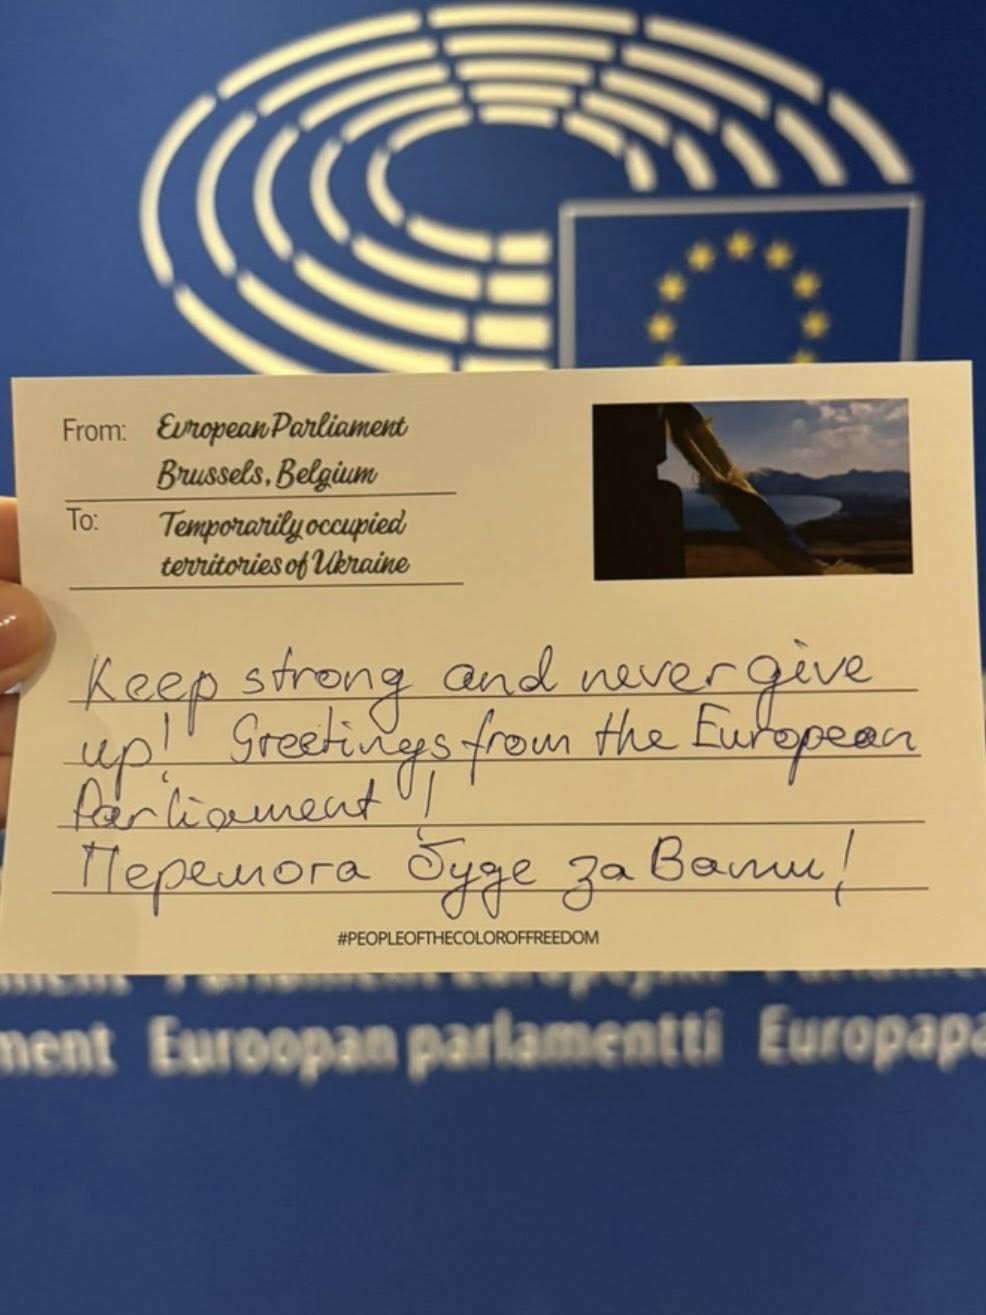 From: European Parliament
Brussels, Belgium
To: Temporarily occupied
territories of Ukraine
Keep strong and never give
up! Greetings from the European
Parliament!
Перемога буде за Вами!
#PEOPLEOFTHECOLOROFFREEDOM
ment Euroopan parlamentti Europapa